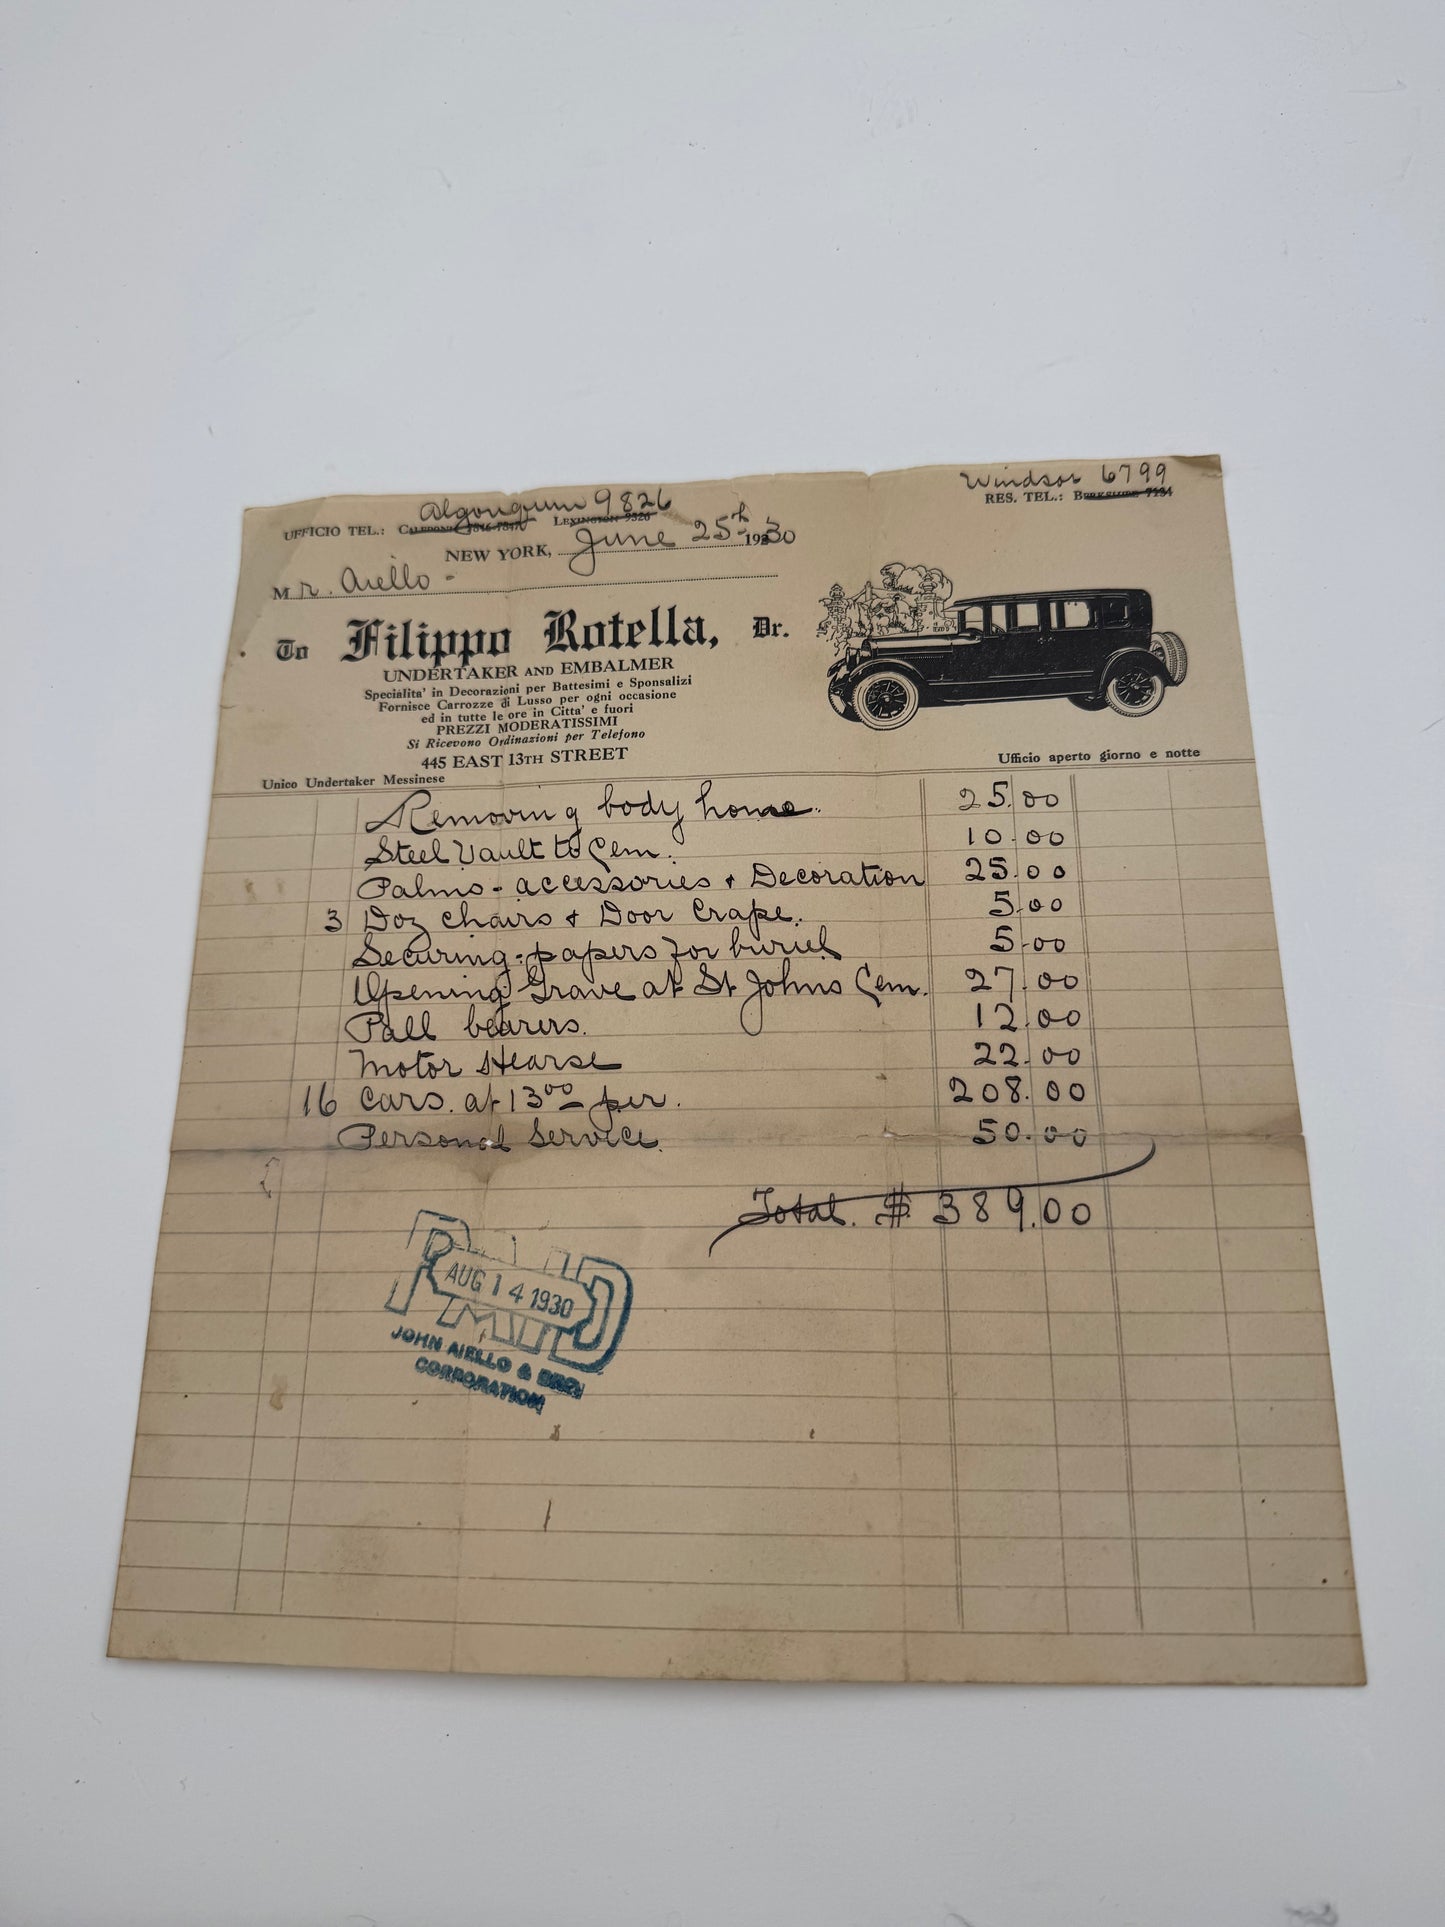 Algonquin 9826
Windsor 6799
UFFICIO TEL.: CALEDONIA LEXINGTON 9326
RES. TEL.: BERKSHIRE 7134
NEW YORK, June 25th 1930
Mr. Aiello -
To Filippo Rotella, Dr.
UNDERTAKER AND EMBALMER
Specialita' in Decorazioni per Battesimi e Sponsalizi
Fornisce Carrozze di Lusso per ogni occasione
ed in tutte le ore in Citta' e fuori
PREZZI MODERATISSIMI
Si Ricevono Ordinazioni per Telefono
445 EAST 13TH STREET
Unico Undertaker Messinese
Ufficio aperto giorno e notte
Removing body home. 25.00
Steel Vault to Cem. 10.00
Palms - accessories & Decoration 25.00
3 Doz chairs & Door Crape. 5.00
Securing papers for buriel 5.00
Opening Grave at St Johns Cem. 27.00
Pall bearers. 12.00
Motor Hearse 22.00
16 Cars. at 13.00 per. 208.00
Personal Service. 50.00
Total. $ 389.00
AUG 14 1930
JOHN AIELLO &
CORPORATION